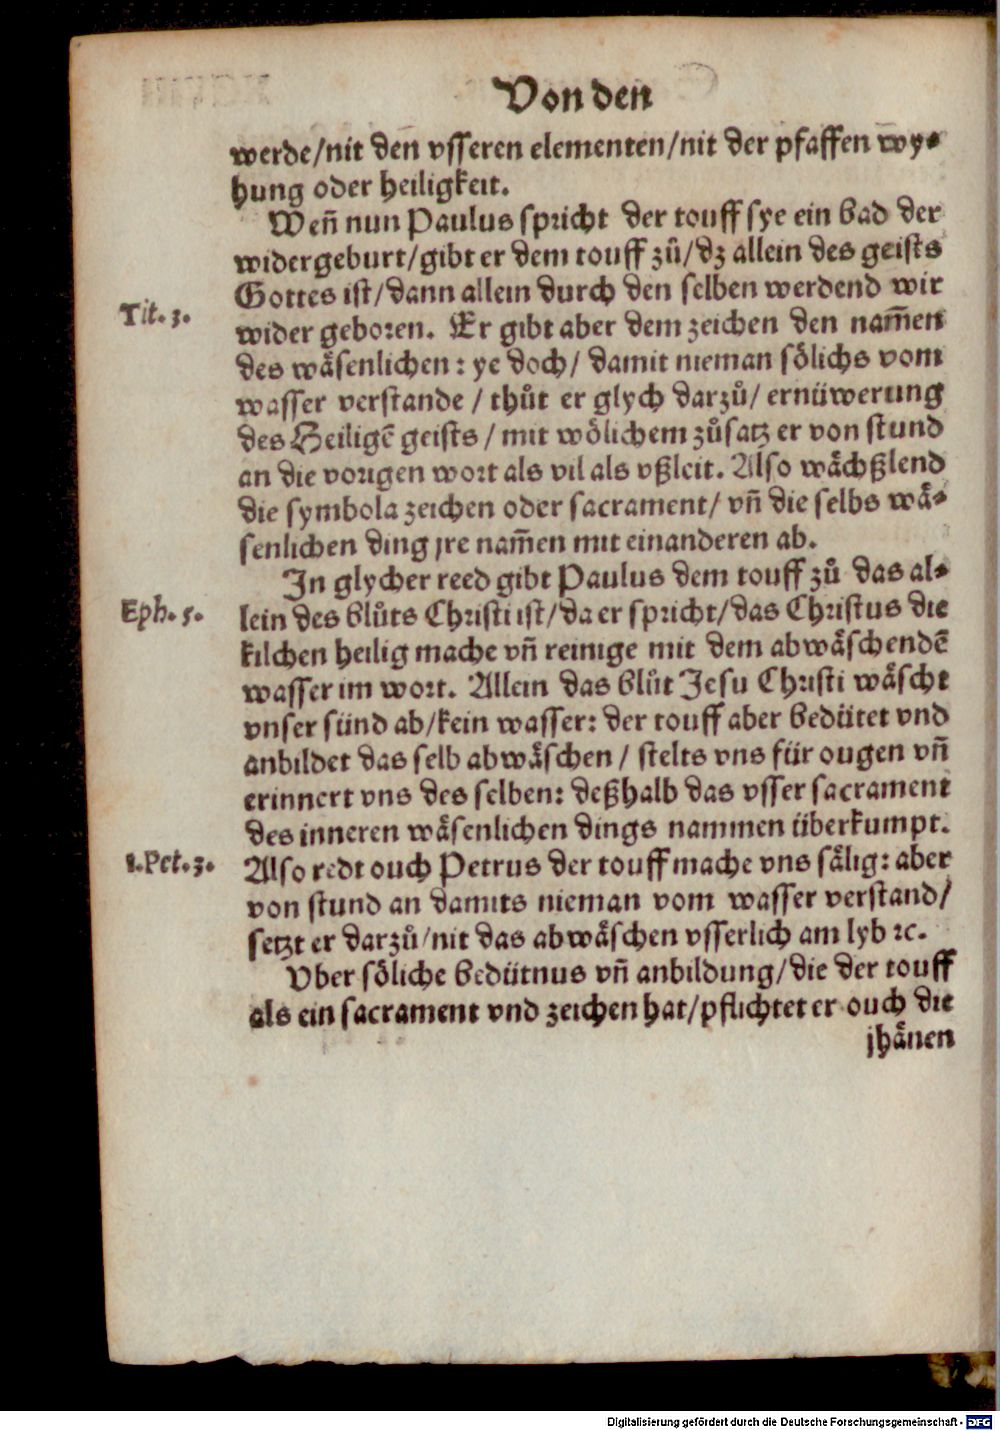 Von den
werde/nit den̄ vsseren elementen/nit der pfaffen wy⸗
hung oder heiligkeit.
Weñ nun Paulus spricht der touff sye ein bad der
widergeburt/gibt er dem touff zuͦ/dz allein des geists
Gottes ist/dann allein durch den selben werdend wir
Tit. 3.
wider geboren. Er gibt aber dem zeichen den nam̄en
des waͤsenlichen: ye doch/ damit nieman soͤlichs vom
wasser verstande / thuͦt er glych darzuͦ/ ernüwerung
des Heiligē geists / mit woͤlichem zuͦsatz er von stund
an die vorigen wort als vil als vßleit. Also waͤchßlend
die symbola zeichen oder sacrament/ vñ die selbs waͤ⸗
senlichen ding jre nam̄en mit einanderen ab.
In glycher reed gibt Paulus dem touff zuͦ das al⸗
Eph. 5.
lein des bluͦts Christi ist/da er spricht/das Christus die
kilchen heilig mache vñ reinige mit dem abwaͤschendē
wasser im wort. Allein das bluͦt Jesu Christi waͤscht
vnser sünd ab/kein wasser: der touff aber bedütet vnd
anbildet das selb abwaͤschen / stelts vns für ougen vñ
erinnert vns des selben: deßhalb das vsser sacrament
des inneren waͤsenlichen dings nammen überkumpt.
1. Pet. 3.
Also redt ouch Petrus der touff mache vns saͤlig: aber
von stund an damits nieman vom wasser verstand/
setzt er darzuͦ/nit das abwaͤschen vsserlich am lyb ꝛc.
Vber soͤliche bedütnus vñ anbildung/die der touff
als ein sacrament vnd zeichen hat/pflichtet er ouch die
jhaͤnen
Digitalisierung gefördert durch die Deutsche Forschungsgemeinschaft - DFG